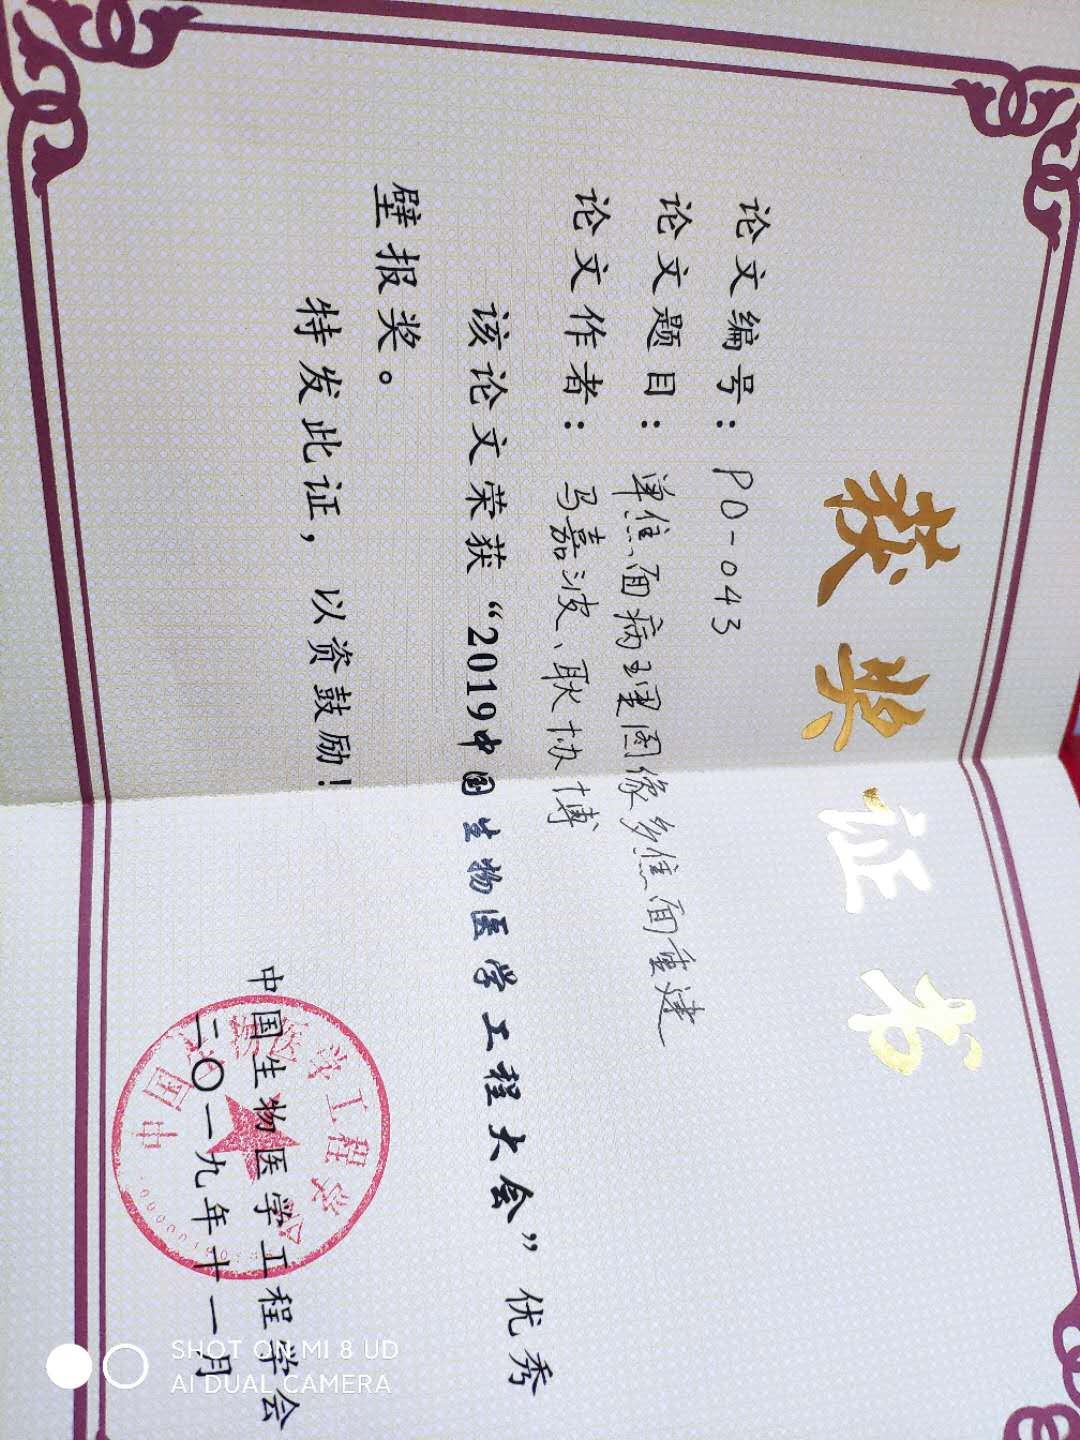 获奖证书
论文编号：PO-043
论文题目：单焦面病理图像多焦面重建
论文作者：马嘉波、耿协博
该论文荣获“2019中国生物医学工程大会”优秀
壁报奖。
特发此证，以资鼓励！
中国生物医学工程学会
二〇一九年十一月
中国生物医学工程学会
SHOT ON MI 8 UD
AI DUAL CAMERA